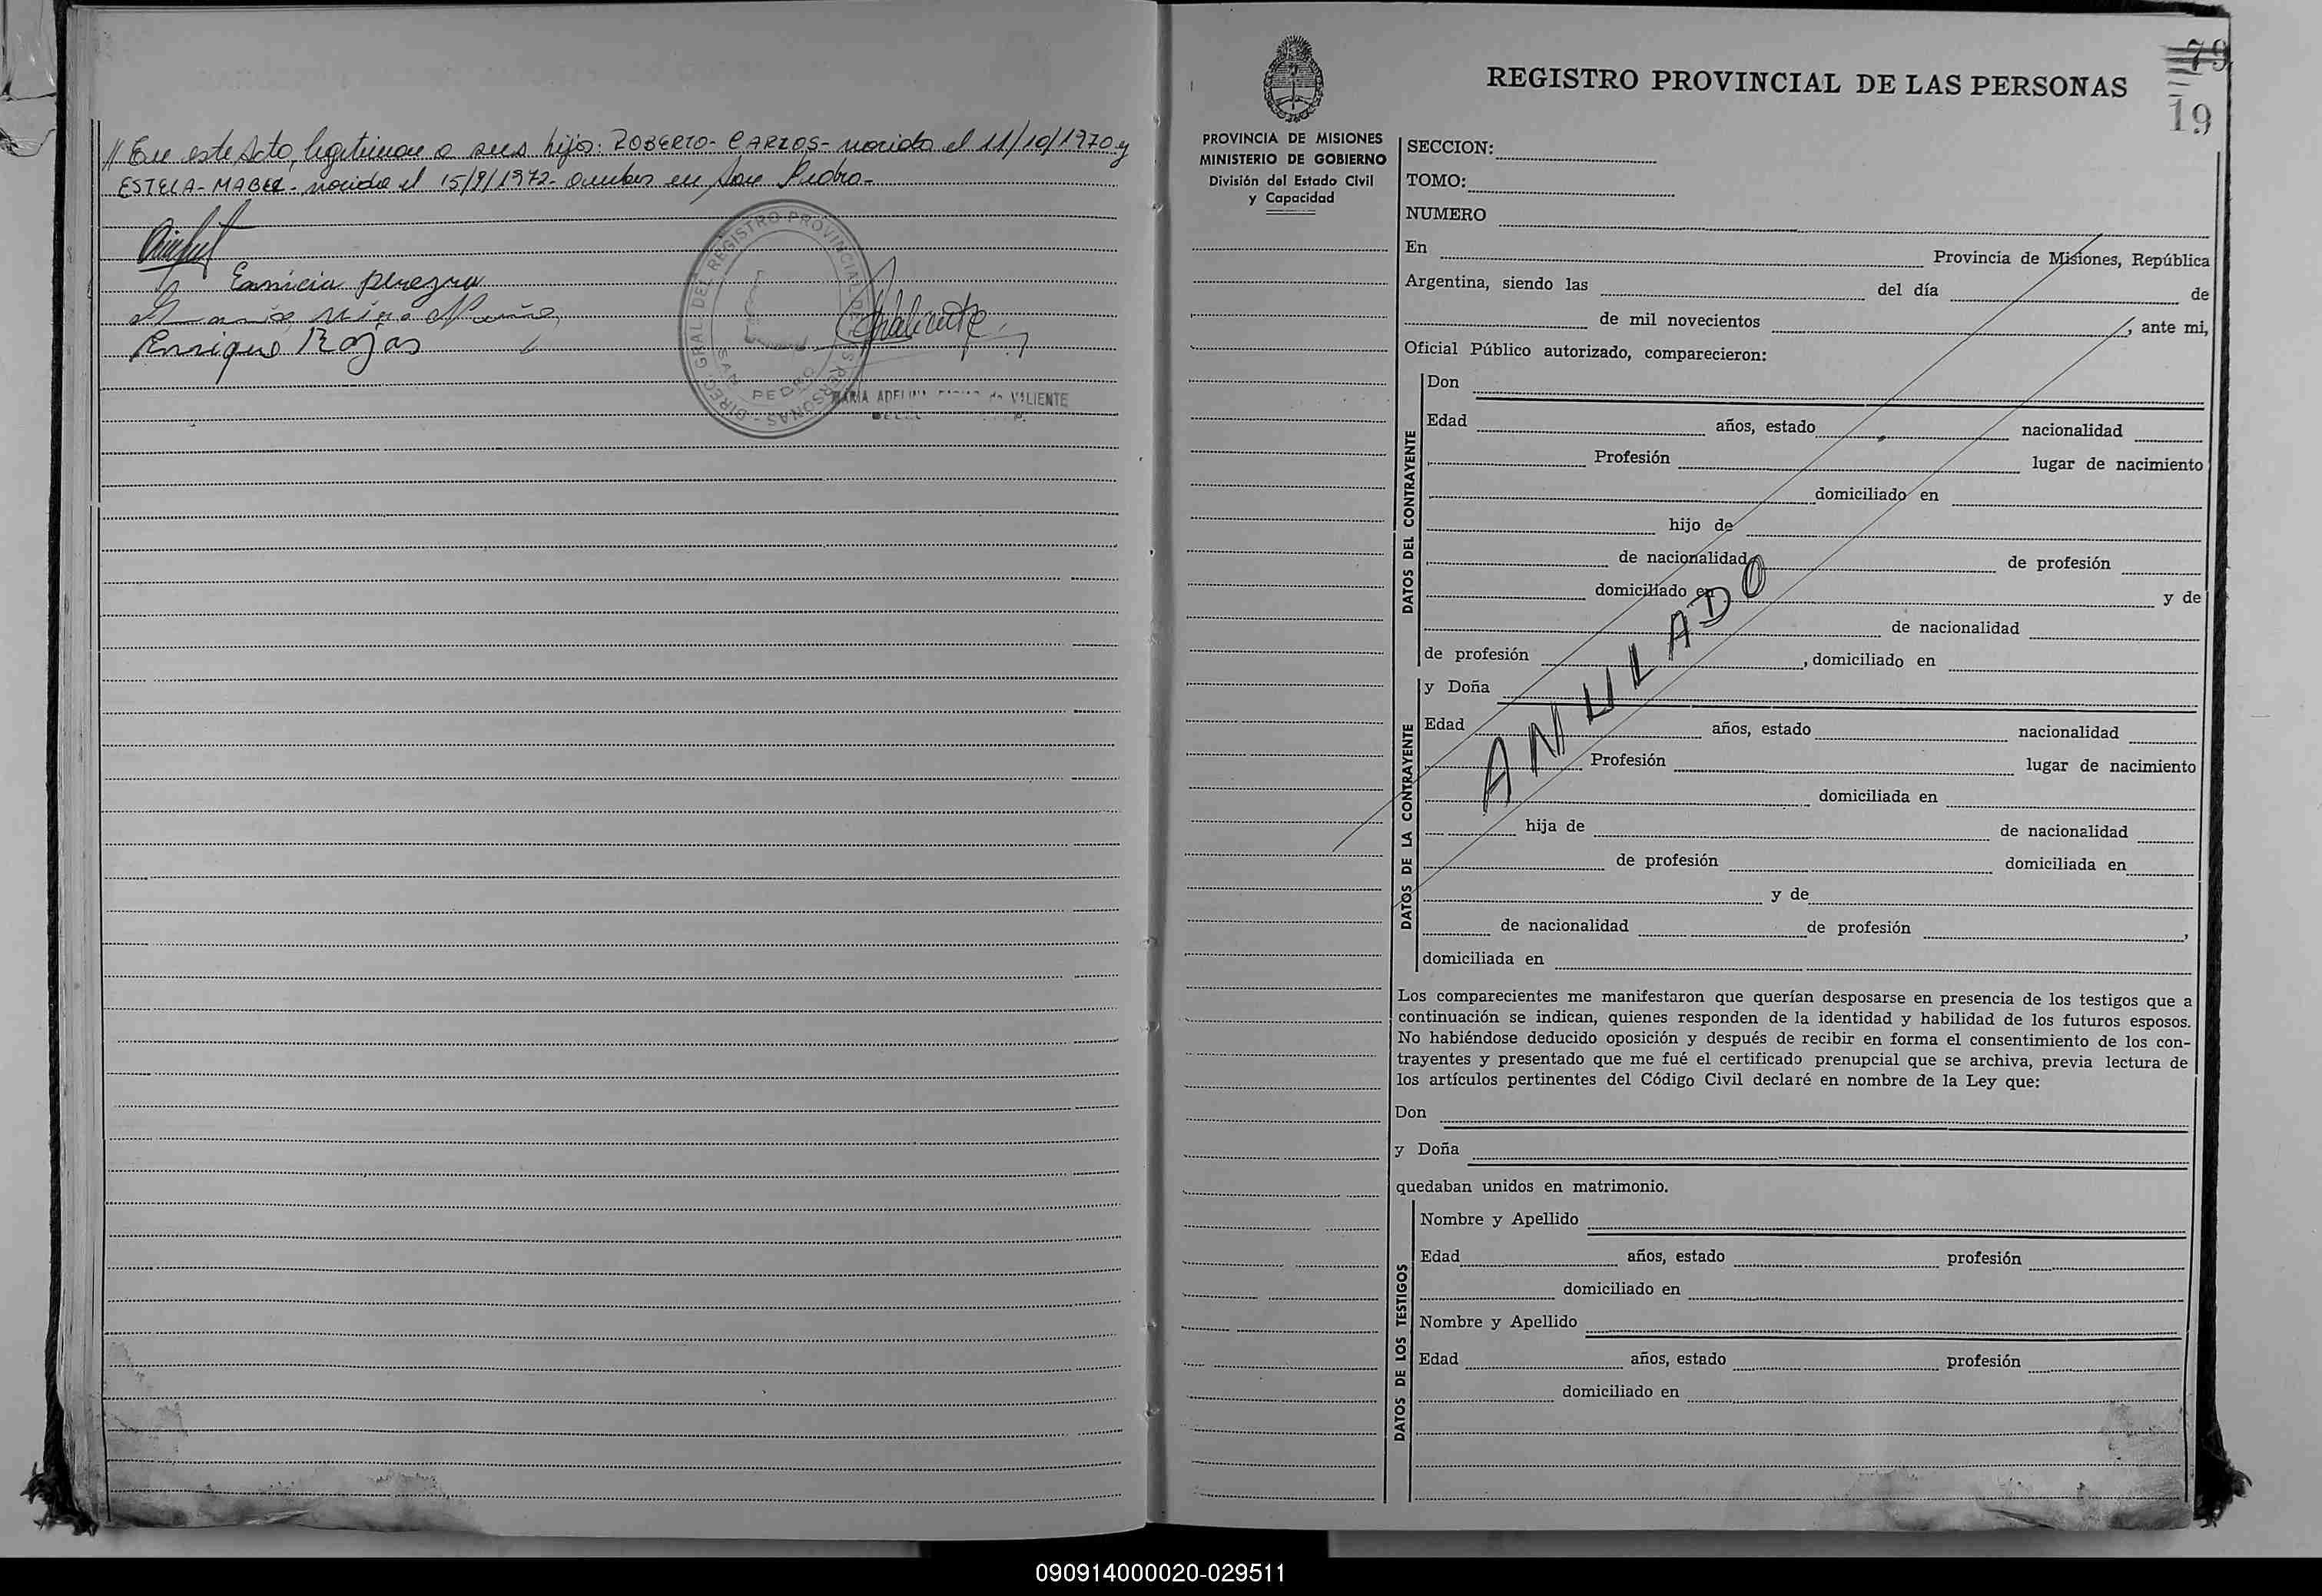 // En este Acto, legitiman a sus hijos: ROBERTO - CARLOS - nacido el 11/10/1970 y
ESTELA - MABEL - nacida el 15/9/1972 - ambos en San Pedro -
pereyra
Enrique Rojas
DIREC. GRAL DEL REGISTRO PROVINCIAL DE LAS PERSONAS -
SAN PEDRO
MARIA ADELINA de VALIENTE
79
19
REGISTRO PROVINCIAL DE LAS PERSONAS
PROVINCIA DE MISIONES
MINISTERIO DE GOBIERNO
División del Estado Civil
y Capacidad
SECCION:
TOMO:
NUMERO
En Provincia de Misiones, República
Argentina, siendo las del día de
de mil novecientos , ante mi,
Oficial Público autorizado, comparecieron:
DATOS DEL CONTRAYENTE
Don
Edad años, estado nacionalidad
Profesión lugar de nacimiento
domiciliado en
hijo de
de nacionalidad de profesión
domiciliado en y de
de nacionalidad
de profesión , domiciliado en
ANULADO
DATOS DE LA CONTRAYENTE
y Doña
Edad años, estado nacionalidad
Profesión lugar de nacimiento
domiciliada en
hija de de nacionalidad
de profesión domiciliada en
y de
de nacionalidad de profesión ,
domiciliada en
Los comparecientes me manifestaron que querían desposarse en presencia de los testigos que a
continuación se indican, quienes responden de la identidad y habilidad de los futuros esposos.
No habiéndose deducido oposición y después de recibir en forma el consentimiento de los con-
trayentes y presentado que me fué el certificado prenupcial que se archiva, previa lectura de
los artículos pertinentes del Código Civil declaré en nombre de la Ley que:
Don
y Doña
quedaban unidos en matrimonio.
DATOS DE LOS TESTIGOS
Nombre y Apellido
Edad años, estado profesión
domiciliado en
Nombre y Apellido
Edad años, estado profesión
domiciliado en
090914000020-029511